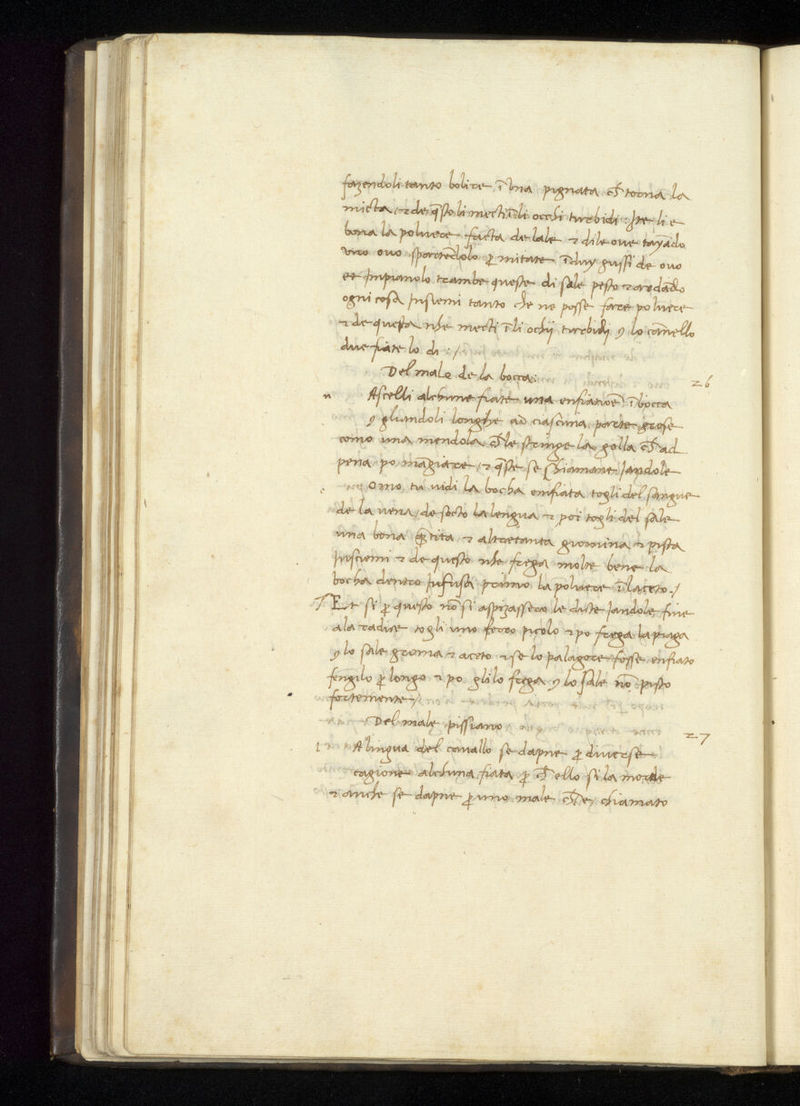 fazendoli tanto bolire ī una pignata che torna la
micta, et de q̄sto li mecti ī li occhi turbidi: Ite li e
bona la polvere facta de lale et dile ove tayādo
uno ovo spartēdolo p mitate ī duy gussi de ovo
et Impianolo trambe queste di sale pesto et ardādo
ogni cosa Insiemi tanto che ne posse fare polvere
et de questa nche mecti ī li ochij turbidi y lo cānello
due fiate lo di :/
Del male de la bocca: 26
n Ascelli alchune fiate una enfiatioē ī bocca
y gliandoli longhe ad ciascuna parte grose
como una mendola che le stringe la golla che ad
pena po māgiare, et q̄ste se chiamano Iandole
Omo tu vidi la bocha emfiata togli del sangue
de la vena de socto la lengua et poi togli del sale
una bona q̄tita, et altretanta gromma et pista
Insiemi et de questo nche frega molte bene la
bocha dentro Infusa primo la polvere ī laceto:/
Et si p questo nō si aspizassero le dicte Iandole fine
ala radice togli uno ferro picolo et po frega la piaga
y lo sale groma et aceto et se lo palagore fosse enfiato
fengilo p longo et po gli lo frega y lo sale nō pisto
fortemente/
Del male pissiano 27
l A lingua del cavallo se dapne p diverse
cagione alchuna fiata p che ello si la morde
et anche se dapne p uno male che e chiamato